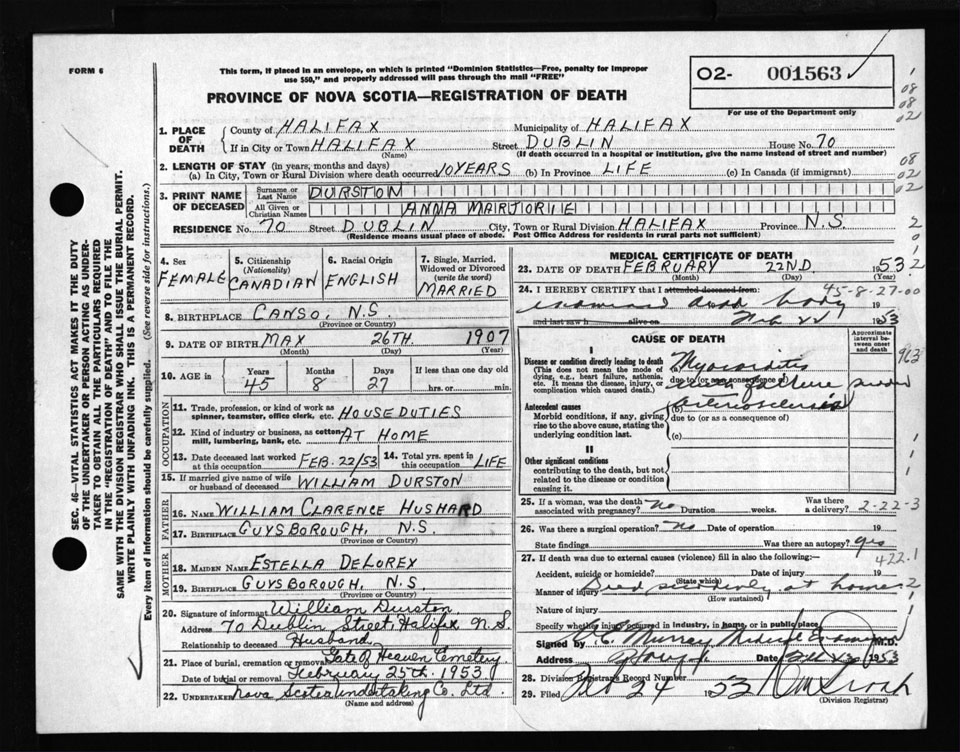 FORM 6
This form, if placed in an envelope, on which is printed "Dominion Statistics—Free, penalty for improper
use $50," and properly addressed will pass through the mail "FREE"
PROVINCE OF NOVA SCOTIA—REGISTRATION OF DEATH
02- 001563
For use of the Department only
1. PLACE OF DEATH
County of HALIFAX Municipality of HALIFAX
If in City or Town HALIFAX (Name) Street DUBLIN House No. 70
(If death occurred in a hospital or institution, give the name instead of street and number)
2. LENGTH OF STAY (in years, months and days)
(a) In City, Town or Rural Division where death occurred 10 YEARS (b) In Province LIFE (c) In Canada (if immigrant)
3. PRINT NAME OF DECEASED
Surname or Last Name DURSTON
All Given or Christian Names ANNA MARJORIE
RESIDENCE No. 70 Street DUBLIN City, Town or Rural Division HALIFAX Province N.S.
(Residence means usual place of abode. Post Office Address for residents in rural parts not sufficient)
SEC. 46—VITAL STATISTICS ACT MAKES IT THE DUTY
OF THE UNDERTAKER OR PERSON ACTING AS UNDER-
TAKER TO OBTAIN ALL THE PARTICULARS REQUIRED
IN THE "REGISTRATION OF DEATH" AND TO FILE THE
SAME WITH THE DIVISION REGISTRAR WHO SHALL ISSUE THE BURIAL PERMIT.
WRITE PLAINLY WITH UNFADING INK. THIS IS A PERMANENT RECORD.
Every item of information should be carefully supplied. (See reverse side for instructions.)
4. Sex FEMALE
5. Citizenship (Nationality) CANADIAN
6. Racial Origin ENGLISH
7. Single, Married, Widowed or Divorced (write the word) MARRIED
8. BIRTHPLACE CANSO, N.S.
(Province or Country)
9. DATE OF BIRTH MAX 26TH. 1907
(Month) (Day) (Year)
10. AGE in Years 45 Months 8 Days 27 If less than one day hrs. or min.
OCCUPATION
11. Trade, profession, or kind of work as spinner, teamster, office clerk, etc. HOUSE DUTIES
12. Kind of industry or business, as cotton mill, lumbering, bank, etc. AT HOME
13. Date deceased last worked at this occupation FEB. 22/53 14. Total yrs. spent in this occupation LIFE
15. If married give name of wife or husband of deceased WILLIAM DURSTON
FATHER
16. Name WILLIAM CLARENCE HUSHARD
17. BIRTHPLACE GUYSBOROUGH, N.S.
(Province or Country)
MOTHER
18. MAIDEN NAME ESTELLA DELOREX
19. BIRTHPLACE GUYSBOROUGH, N.S.
(Province or Country)
20. Signature of informant William Durston
Address 70 Dublin Street, Halifax N.S.
Relationship to deceased Husband
21. Place of burial, cremation or removal Gate of Heaven Cemetery.
Date of burial or removal February 25th. 1953.
22. UNDERTAKER Nova Scotia Undertaking Co. Ltd.
(Name and address)
MEDICAL CERTIFICATE OF DEATH
23. DATE OF DEATH FEBRUARY 22ND 1953
(Month) (Day) (Year)
45-8-27-00
24. I HEREBY CERTIFY that I attended deceased from:
examined dead body 19
and last saw h alive on Feb 22 1953
CAUSE OF DEATH
Approximate interval between onset and death
I
Disease or condition directly leading to death
(This does not mean the mode of dying, e.g., heart failure, asthenia, etc. It means the disease, injury, or complication which caused death.)
(a) Myocarditis
due to (or as a consequence of)
Antecedent causes
Morbid conditions, if any, giving rise to the above cause, stating the underlying condition last.
(b) arteriosclerosis
due to (or as a consequence of)
(c)
II
Other significant conditions
contributing to the death, but not related to the disease or condition causing it.
25. If a woman, was the death associated with pregnancy? No Duration weeks. Was there a delivery?
2-22-3
26. Was there a surgical operation? No Date of operation 19
State findings Was there an autopsy? yes
27. If death was due to external causes (violence) fill in also the following:—
422.1
Accident, suicide or homicide? (State which) Date of injury 19
Manner of injury Died suddenly at home
(How sustained)
Nature of injury
Specify whether injury occurred in industry, in home, or in public place
Signed by Murray Medical Examiner M.D.
Address Date 1953
28. Division Registrar's Record Number
29. Filed Feb 24 1953
(Division Registrar)